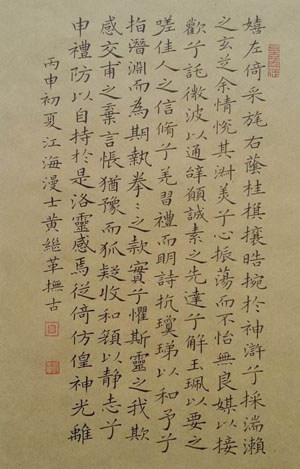 嬉左倚采旄右蔭桂棋攘皓捥於神滸兮採湍瀨
之玄芝余情悅其淑美兮心振蕩而不怡無良媒以接
歡兮託微波以通辭願誠素之先達兮解玉珮以要之
嗟佳人之信脩兮羌習禮而明詩抗瓊珶以和予兮
指潛淵而為期執拳〻之款實兮懼斯靈之我欺
感交甫之棄言悵猶豫而狐疑收和顏以靜志兮
申禮防以自持於是洛靈感焉徙倚仿偟神光離
丙申初夏江海漫士黃繼革撫古